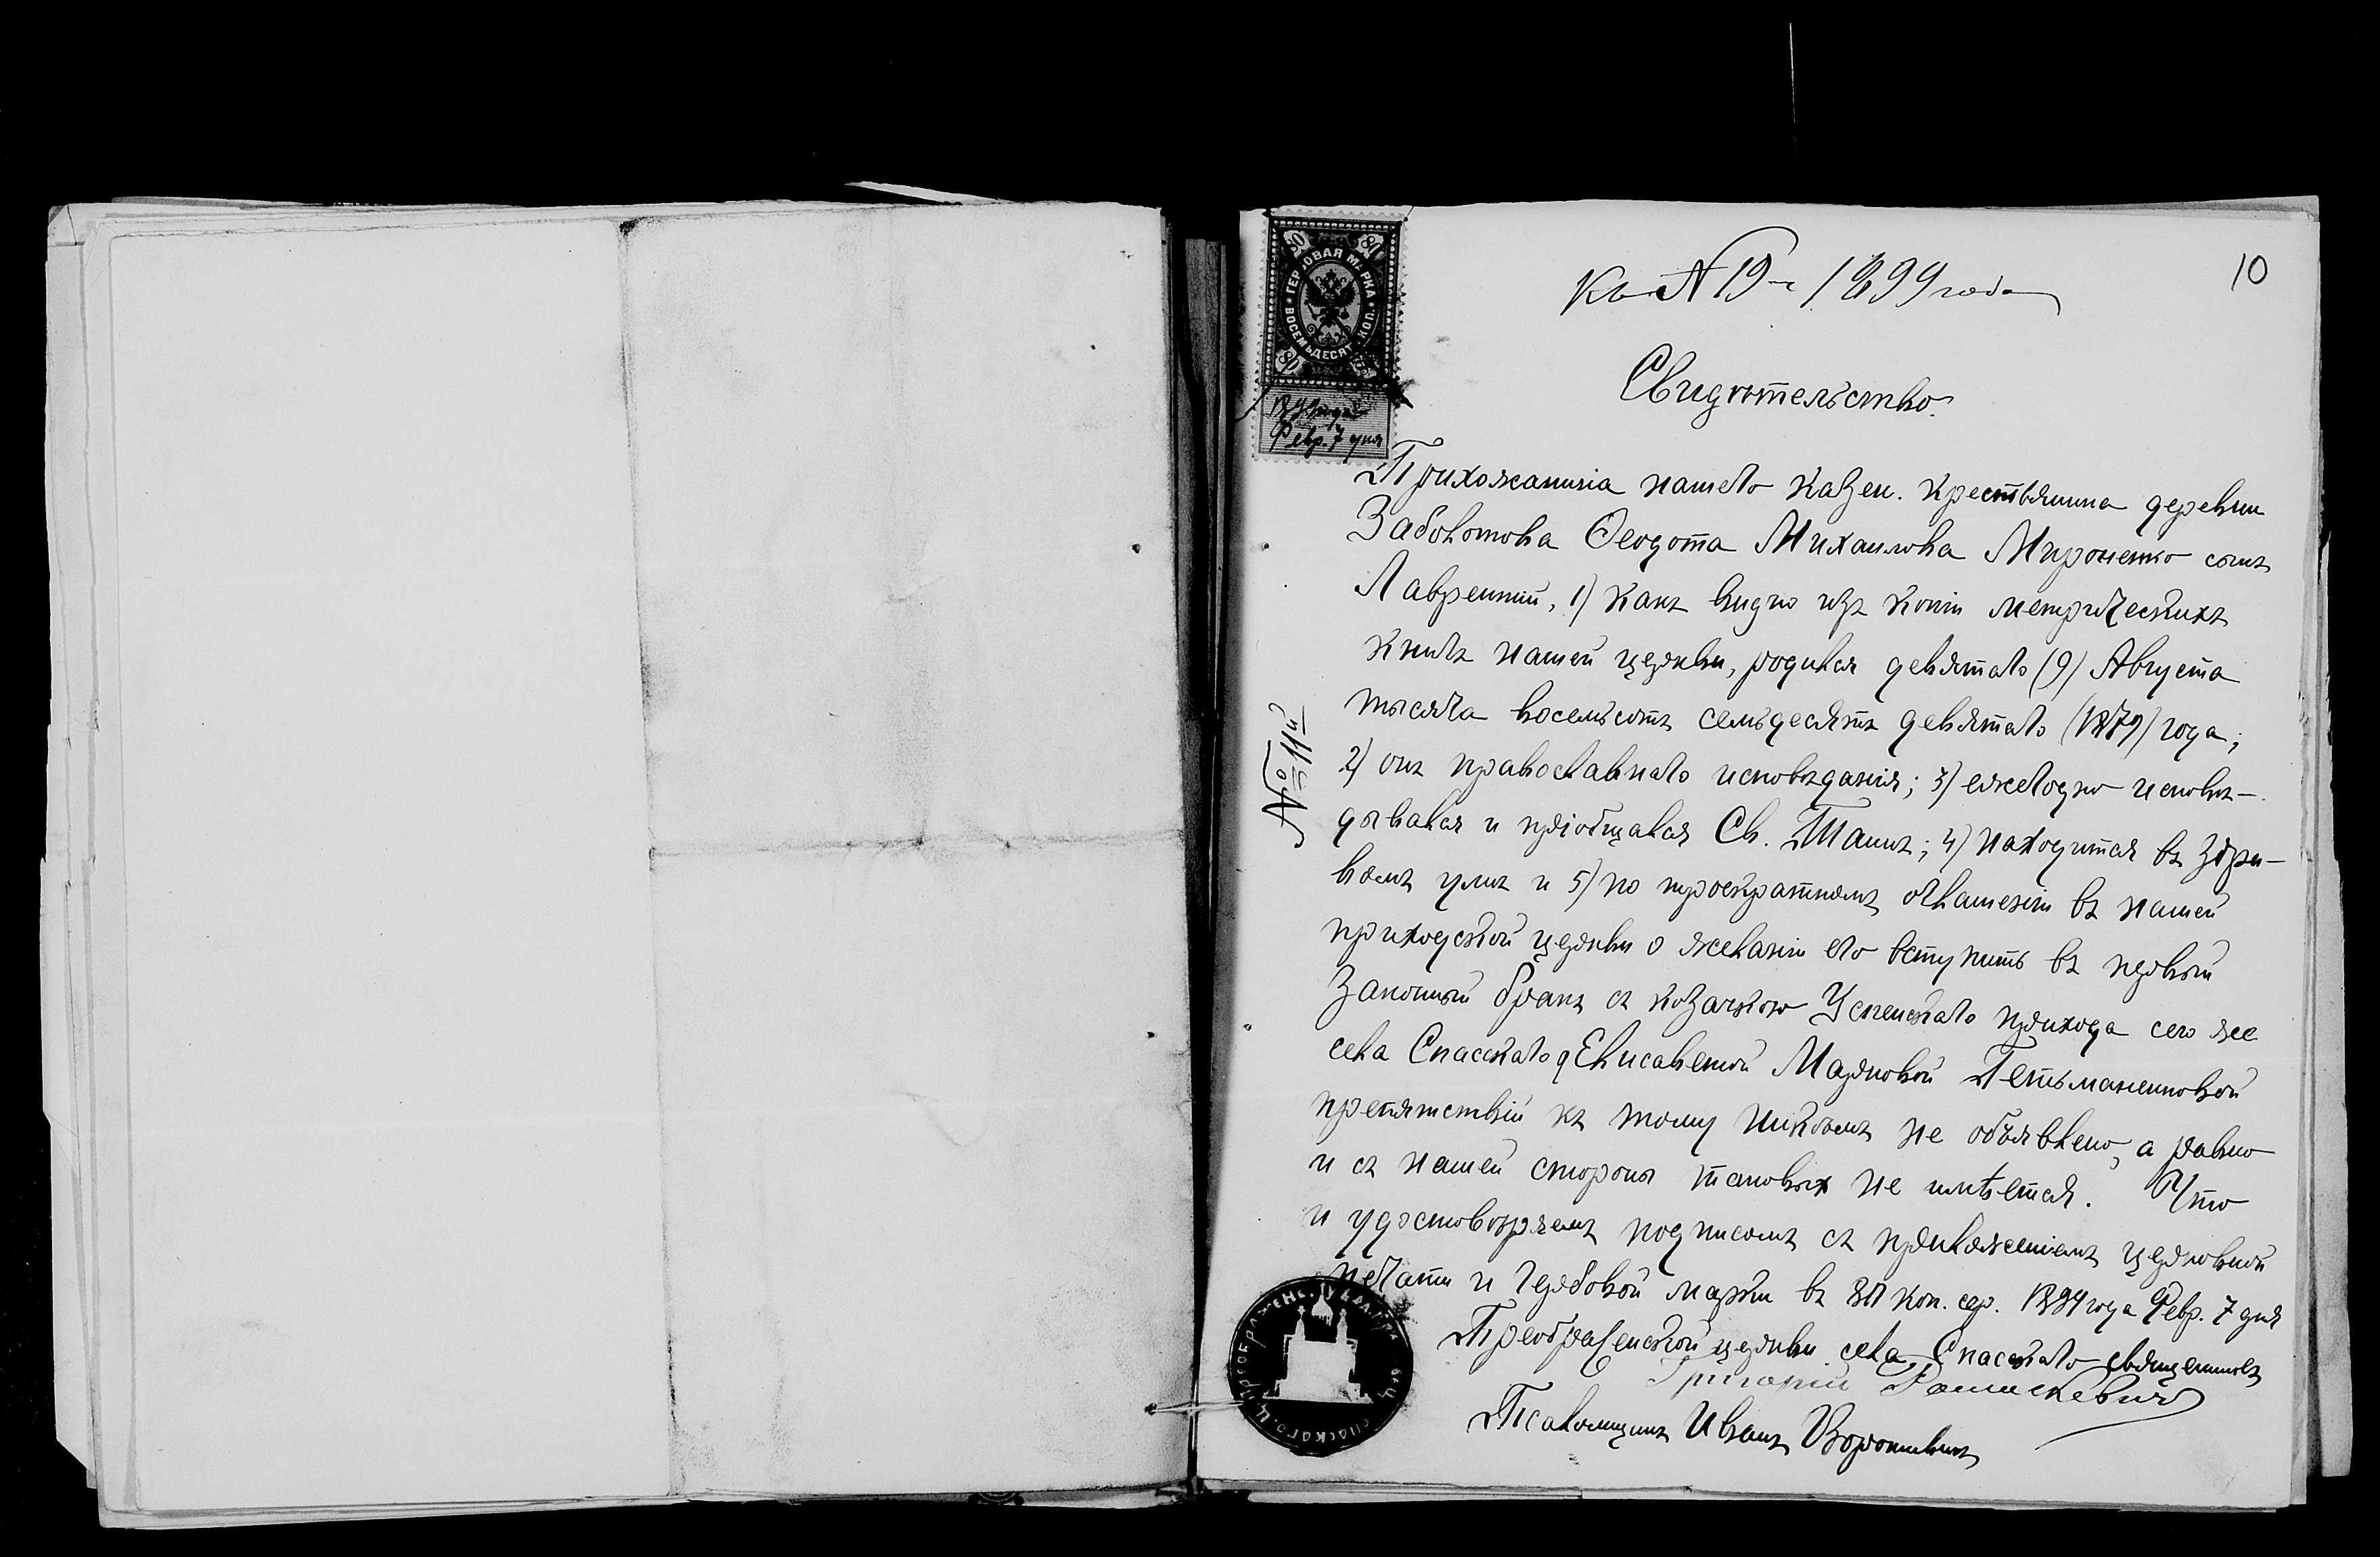 10
Къ № 19-г 1899 года
ГЕРБОВАЯ МАРКА
ВОСЕМЬДЕСЯТ КОП.
80
1899 года
Февр. 7 дня
Свидѣтельство.
Прихожанина нашего казен. крестьянина деревни
Заболотова Ѳеодота Михаилова Мироненко сынъ
Лаврентий, 1) какъ видно изъ копіи метрическихъ
книгъ нашей церкви, родился девятаго (9) Августа
тысяча восемьсотъ семьдесятъ девятаго (1879) года;
2) онъ православнаго исповѣданія; 3) ежегодно исповѣ-
дывался и пріобщался Св. Таинъ; 4) находится въ здра-
вомъ умѣ и 5) по троекратномъ оглашеніи въ нашей
приходской церкви о желаніи его вступить въ первый
законный бракъ съ козачкою Успенскаго прихода сего же
села Спасскаго Елисаветой Марковой Гетьманенковой
препятствій къ тому никѣмъ не объявлено, а равно
и съ нашей стороны таковых не имѣется. Что
и удостовѣряемъ подписомъ съ приложеніемъ церковной
печати и гербовой марки въ 80 коп. сер. 1899 года Февр. 7 дня
Преображенской церкви села Спасскаго священникъ
Григорій
Псаломщикъ Иванъ
№ 11й